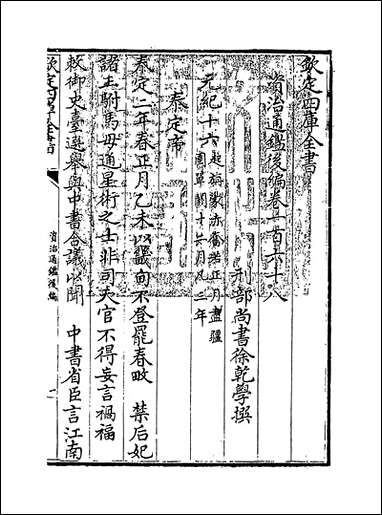 欽定四庫全書
資治通鑑後編卷一百六十八
刑部尚書徐乾學撰
元紀十六 起旃蒙赤奮若正月盡彊
圉單閼十六月凡三年
泰定帝
泰定二年春正月乙未以畿甸不登罷春畋 禁后妃
諸王駙馬毋通星術之士非司天官不得妄言禍福
敕御史臺選舉與中書合議以聞 中書省臣言江南
欽定四庫全書
資治通鑑後編